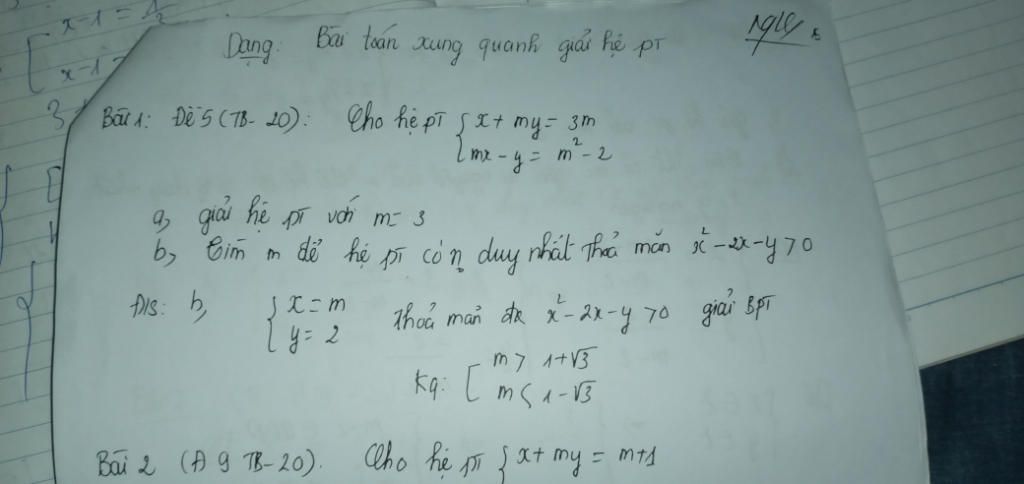 x-1 = 1/2
x-1 =
3
Dạng: Bài toán xung quanh giải hệ pT
Bài 1: Đề 5 (TB-20): Cho hệ pT { x + my = 3m
mx - y = m² - 2
a, giải hệ pT với m = 3
b, Tìm m để hệ pT có n₀ duy nhất Thoả mãn x² - 2x - y > 0
Đ/s: b, { x = m
y = 2
Thoả mãn đk x² - 2x - y > 0 giải BPT
Kq: [ m > 1+√3
m < 1-√3
Bài 2 (A 9 TB-20). Cho hệ pT { x + my = m+1